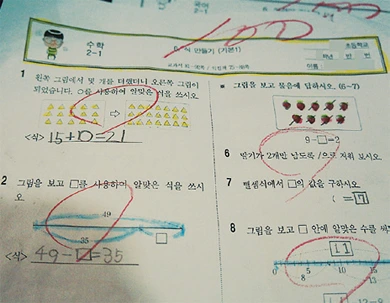 수학
2-1
식 만들기 (기본1)
초등학교
학년 반 번
이름
1 왼쪽 그림에서 몇 개를 더했더니 오른쪽 그림이
되었습니다. □를 사용하여 알맞은 식을 쓰시오
<식> 15+□=21
2 그림을 보고 □를 사용하여 알맞은 식을 쓰시
오
49
35 □
<식> 49-□=35
그림을 보고 물음에 답하시오. (6~7)
9-□=2
6 딸기가 2개만 남도록 /으로 지워 보시오.
7 뺄셈식에서 □의 값을 구하시오
( =7
8 그림을 보고 □ 안에 알맞은 수를 써
11
0 5 10 15
8